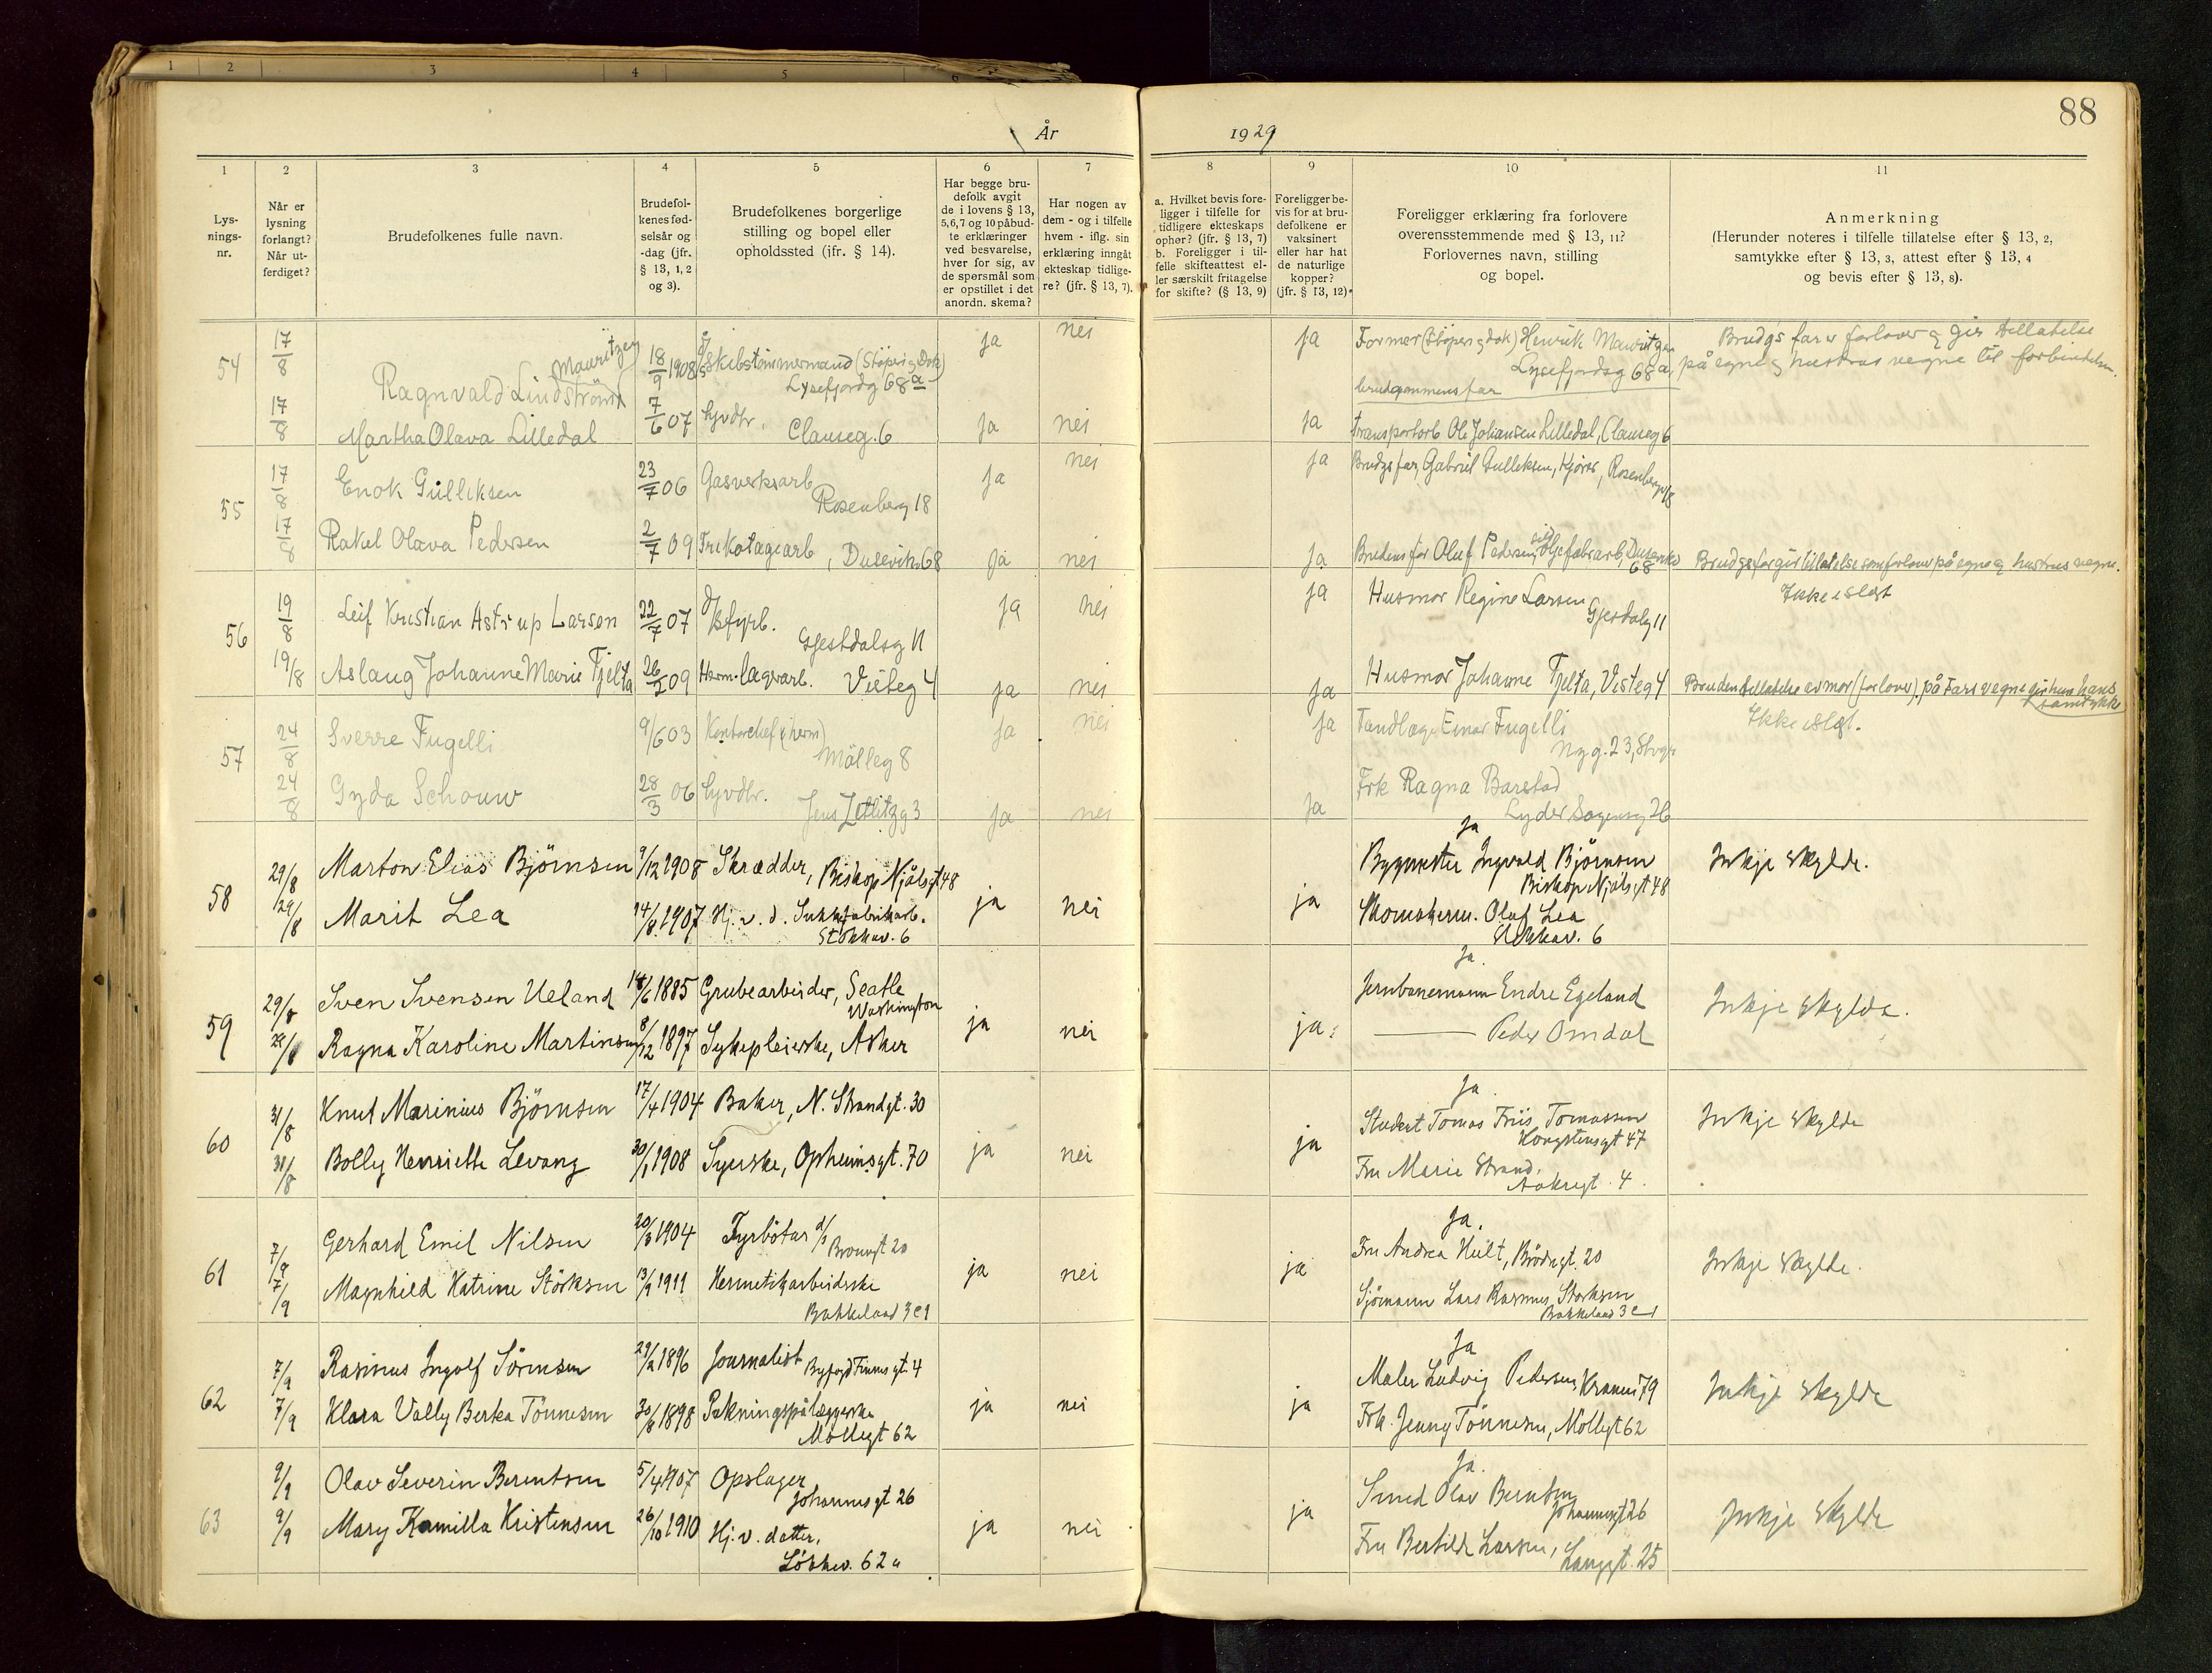 1 2 3 4 5 6
88
År 1929
1 2 3 4 5 6 7 8 9 10 11
Lys-
nings-
nr.
Når er
lysning
forlangt?
Når ut-
ferdiget?
Brudefolkenes fulle navn.
Brudefol-
kenes fød-
selsår og
-dag (jfr.
§ 13, 1, 2
og 3).
Brudefolkenes borgerlige
stilling og bopel eller
opholdssted (jfr. § 14).
Har begge bru-
defolk avgit
de i lovens § 13,
5,6,7 og 10 påbud-
te erklæringer
ved besvarelse,
hver for sig, av
de spørsmål som
er opstillet i det
anordn. skema?
Har nogen av
dem - og i tilfelle
hvem - iflg. sin
erklæring inngåt
ekteskap tidlige-
re? (jfr. § 13, 7).
a. Hvilket bevis fore-
ligger i tilfelle for
tidligere ekteskaps
ophør? (jfr. § 13, 7)
b. Foreligger i til-
felle skifteattest el-
ler særskilt fritagelse
for skifte? (§ 13, 9)
Foreligger be-
vis for at bru-
defolkene er
vaksinert
eller har hat
de naturlige
kopper?
(jfr. § 13, 12).
Foreligger erklæring fra forlovere
overensstemmende med § 13, 11?
Forlovernes navn, stilling
og bopel.
Anmerkning
(Herunder noteres i tilfelle tillatelse efter § 13, 2,
samtykke efter § 13, 3, attest efter § 13, 4
og bevis efter § 13, 8).
54 17/8 Mauritzen
Ragnvald Lindström 18/9 1908 Skibstømmermand (Støperi g Dok)
Lysefjordg 68a ja nei ja Former (Støperi g dok) Henrik Mauritzen
Lysefjordg 68a,
brudgommens far
Brudgs far er forlover g gir tillatelse
på egne g hustrus vegne til forbindelsen.
17/8 Martha Olava Lilledal 7/6 07 hjvdtr. Clauseg. 6 ja nei ja Transportarb Ole Johansen Lilledal, Clauseg 6
55 17/8 Enok Gulliksen 23/7 06 Gasverksarb
Rosenberg 18 ja nei ja Brudgs far, Gabriel Gulliksen, Kjører, Rosenbergg 18
17/8 Rakel Olava Pedersen 2/7 09 Trikotagearb, Dusevikn 68 ja nei ja Brudens far Oluf Pedersen, Oljefabrarb, Dusevikn
68
Brudgs far gir tillatelse som forlover på egne g hustrus vegne.
56 19/8 Leif Kristian Astrup Larsen 22/7 07 d/s fyrb.
Gjestdalsg 11 ja nei ja Husmor Regine Larsen
Gjesdalg 11
Ikke i slegt
19/8 Aslaug Johanne Marie Tjelta 26/2 09 Herm. lagerarb. Visteg 4 ja nei ja Husmor Johanne Tjelta, Visteg 4
Bruden tillatelse av mor (forlover), på Fars vegne gir hun hans
samtykke
57 24/8 Sverre Fugelli 9/6 03 Kontorchef (herm)
Mölleg 8 ja nei ja Tandlæge Einar Fugelli
Nyg. 23, Stvgr
Ikke i slegt.
24/8 Gyda Schouw 28/3 06 hjvdtr.
Jens Zetlitzg 3 ja nei ja Frk Ragna Barstad
Lyder Sagensg 26
58 29/8 Marton Elias Björnsen 9/12 1908 Skrædder, Biskop Njålsgt 48
29/8 Marit Lea 14/8 1907 Hj. v. d. Sukkefabrikarb.
Stokkav. 6 ja nei ja
Ja
Byggmester Ingvald Björnsen
Biskop Njålsgt 48
Skomakerm. Oluf Lea
Stokkav. 6
Inkje skylde.
59 29/8 Sven Svensen Ueland 14/6 1885 Grubearbeider, Seatle
Washington
28/8 Ragna Karoline Martinsen 8/12 1897 Sykepleierske, Asker ja nei ja.
Ja.
Jernbanemann Endre Egeland
Peder Omdal
Inkje skylde.
60 31/8 Knut Marinius Björnsen 17/4 1904 Baker, N. Strandgt. 30
31/8 Bolly Henriette Levang 30/1 1908 Syerske, Opheimsgt. 70 ja nei ja
Ja.
Student Tomas Friis Tomassen
Kongstensgt 47
Fru Marie Strand,
Aakregt. 4.
Inkje skylde
61 7/9 Gerhard Emil Nilsen 20/8 1904 Fyrbötar d/s
Brovgt 20
7/9 Magnhild Katrine Störksen 13/9 1911 Hermetikarbeiderske
Bakkeland 3 e 1 ja nei ja
Ja.
Fru Andrea Hult, Brödregt. 20
Sjömann Lars Rasmus Storksen
Bakkeland 3 e 1
Inkje skylde.
62 7/9 Rasmus Ingolf Sörensen 29/2 1896 Journalist Byfogd Finnsgt. 4
7/9 Klara Vally Berta Tönnesen 30/8 1898 Pakningspålæggerske
Möllegt 62 ja nei ja
Ja
Maler Ludvig Pedersen, Kranen 79
Frk. Jenny Tönnesen, Möllegt 62
Inkje skylde
63 9/9 Olav Severin Berentsen 5/4 1907 Opslager
Johannesgt 26
9/9 Mary Kamilla Kristensen 26/10 1910 Hj. v. datter.
Løkkev. 62 a ja nei ja
Ja.
Smed Olav Berntsen
Johannesgt 26
Fru Bertilde Larsen,
Langgt. 25
Inkje skylde